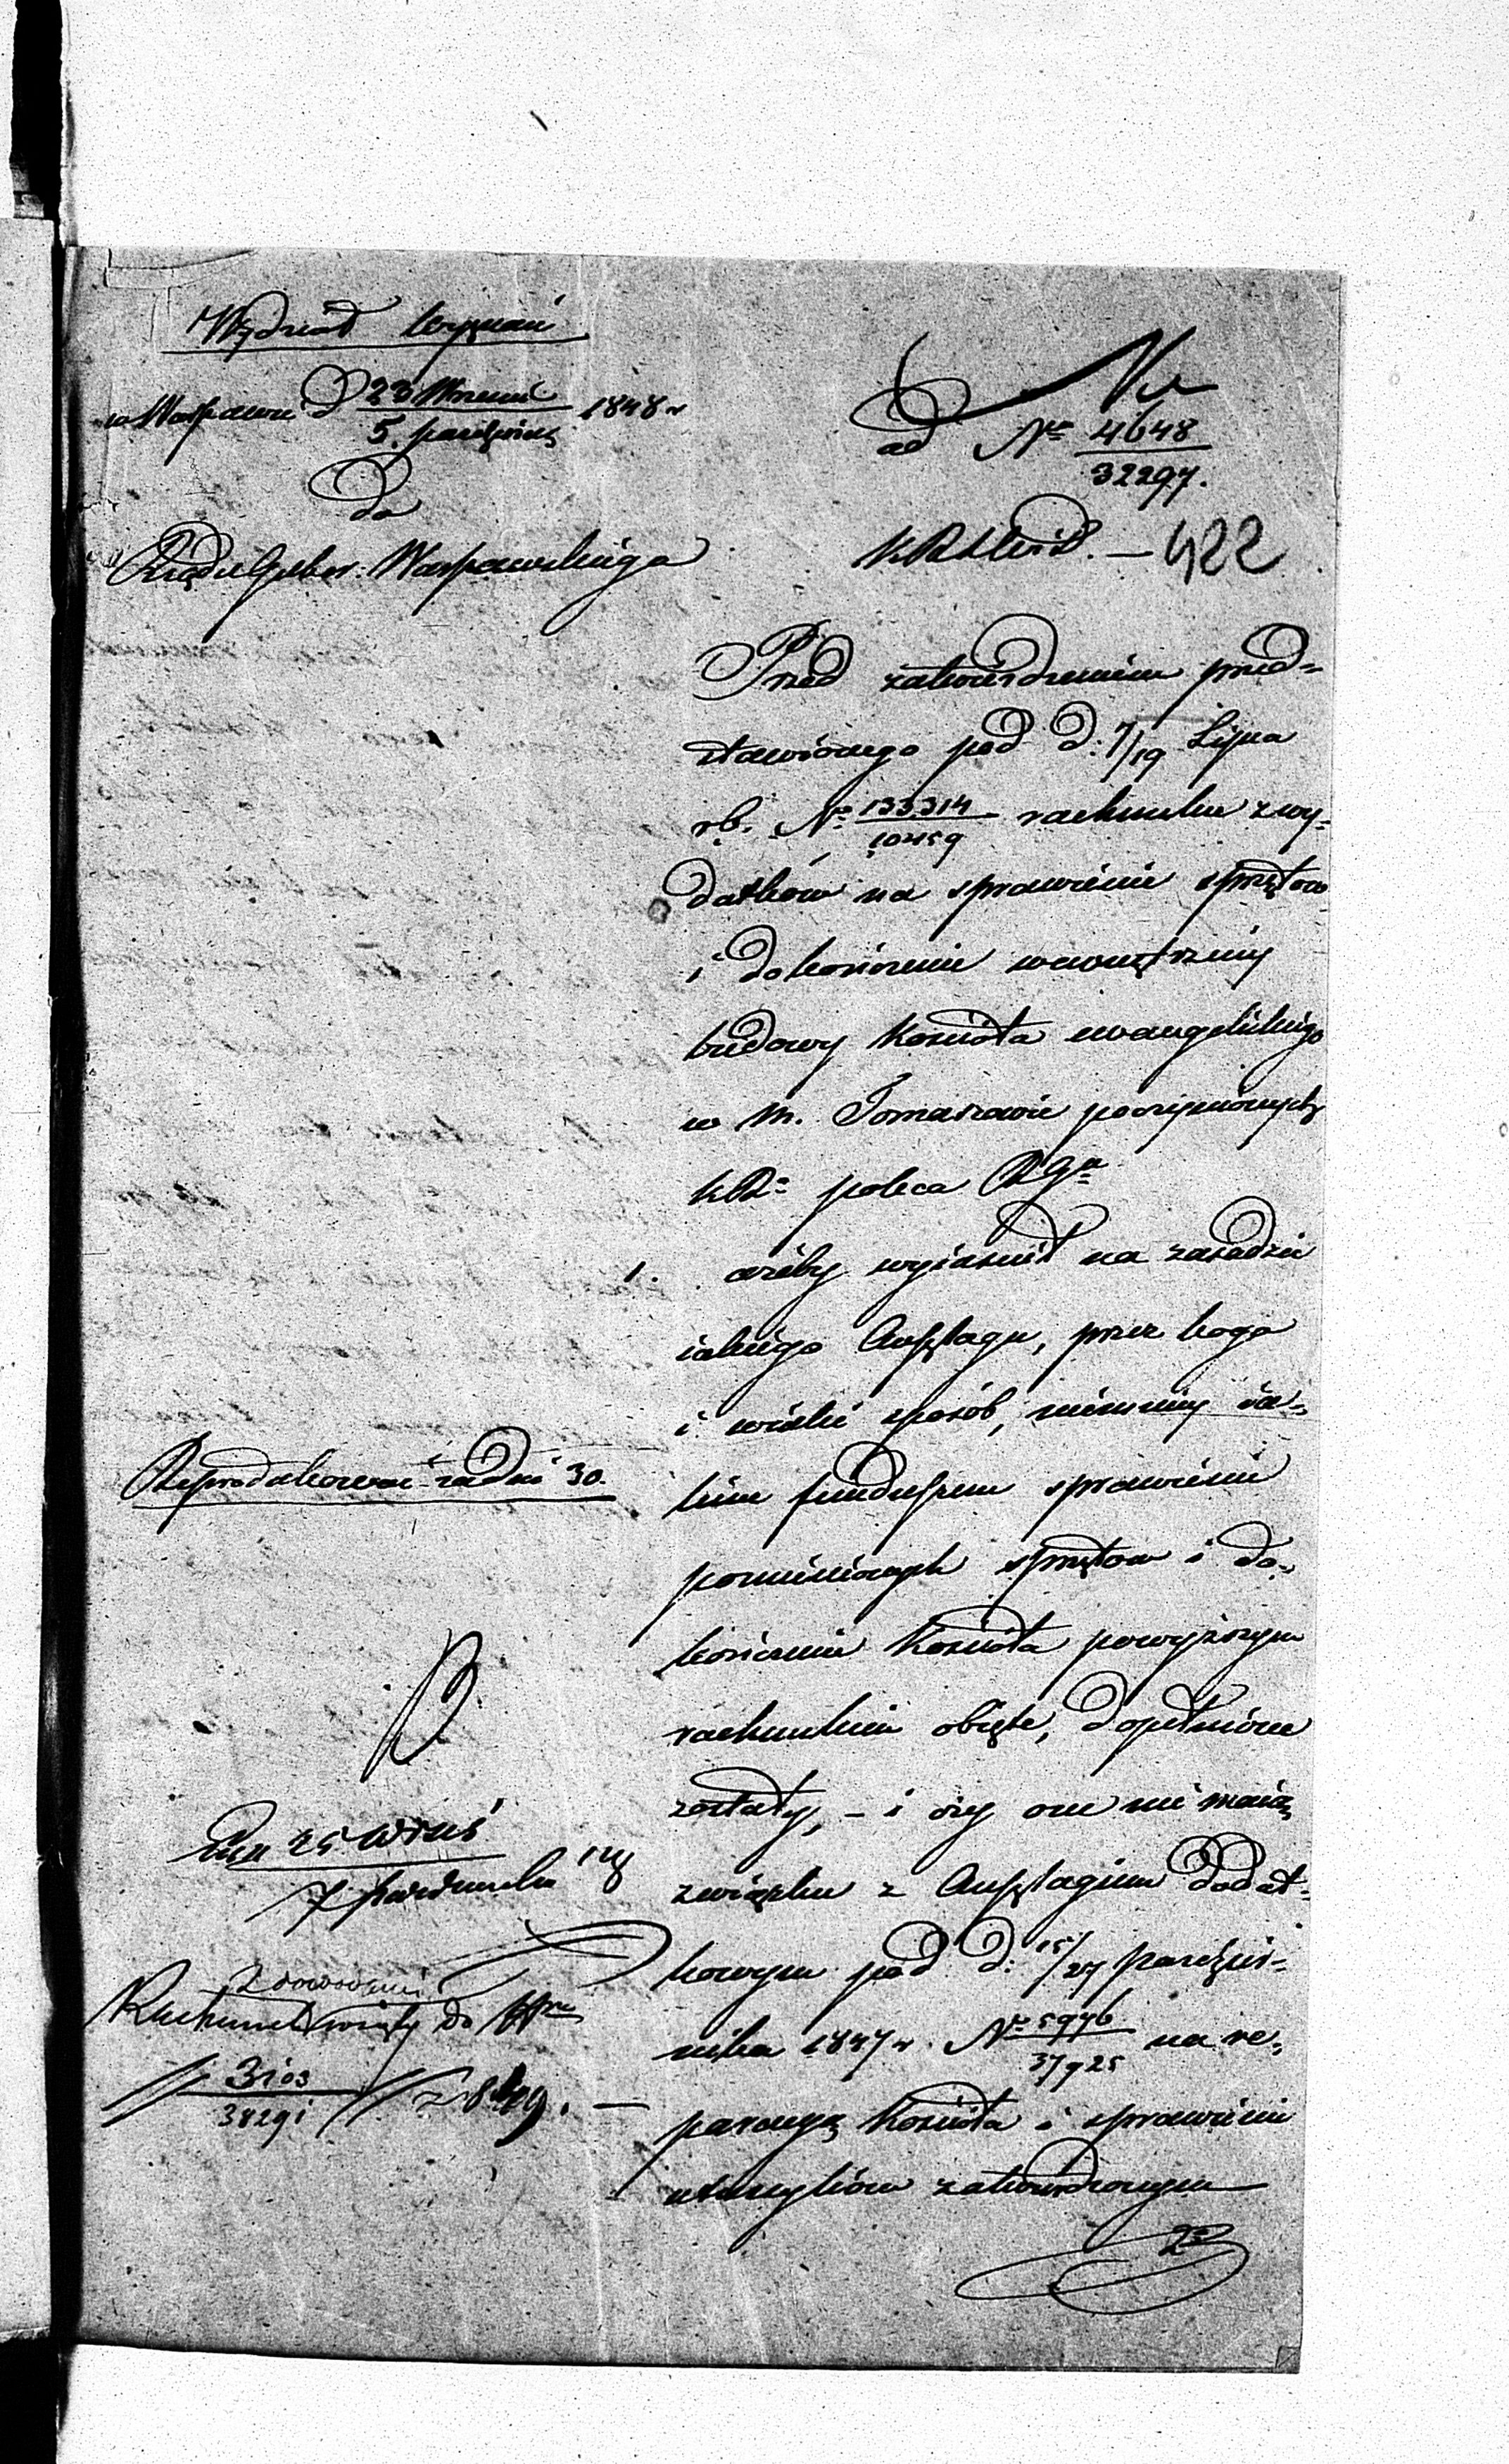 Wydział Wyznań
w Warszawie d 23 Wrześni 1848 r
5. paździer
ad Nr 4648
32297.
Do
Rządu Guber. Warszawskiego
422
Przed zatwierdzeniem przed-
stawionego pod d: 7/19 Lipca
r.b. No 133314 rachunku z wy-
10459
datków na sprawienie sprzętów
i dokończenie wewnętrzny
budowy Kościoła ewangelickiego
w m. Tomaszowie poczynionych
KR: poleca RGu
1. ażeby wyiaśnił na zasadzie
iakiego Anszlagu, przez kogo
i w iaki sposób, niemniey ia-
kim funduszem sprawienie
pomienionych sprzętów i do-
kończenie Kościoła powyższym
rachunkiem obięte, dopełnione
zostały, – i czy one nie maią
związku z Anszlagiem dodat-
kowym pod d: 15/27 paździer-
nika 1847 r. No 5976 na re-
37925
paracyą Kościoła i sprawienie
utensyliów zatwierdzonym
Reprodukować za dni 30.
25 Wrześ
7 Października
Z dowodami
Rachunek wzięty do
3103
38291
849.
2